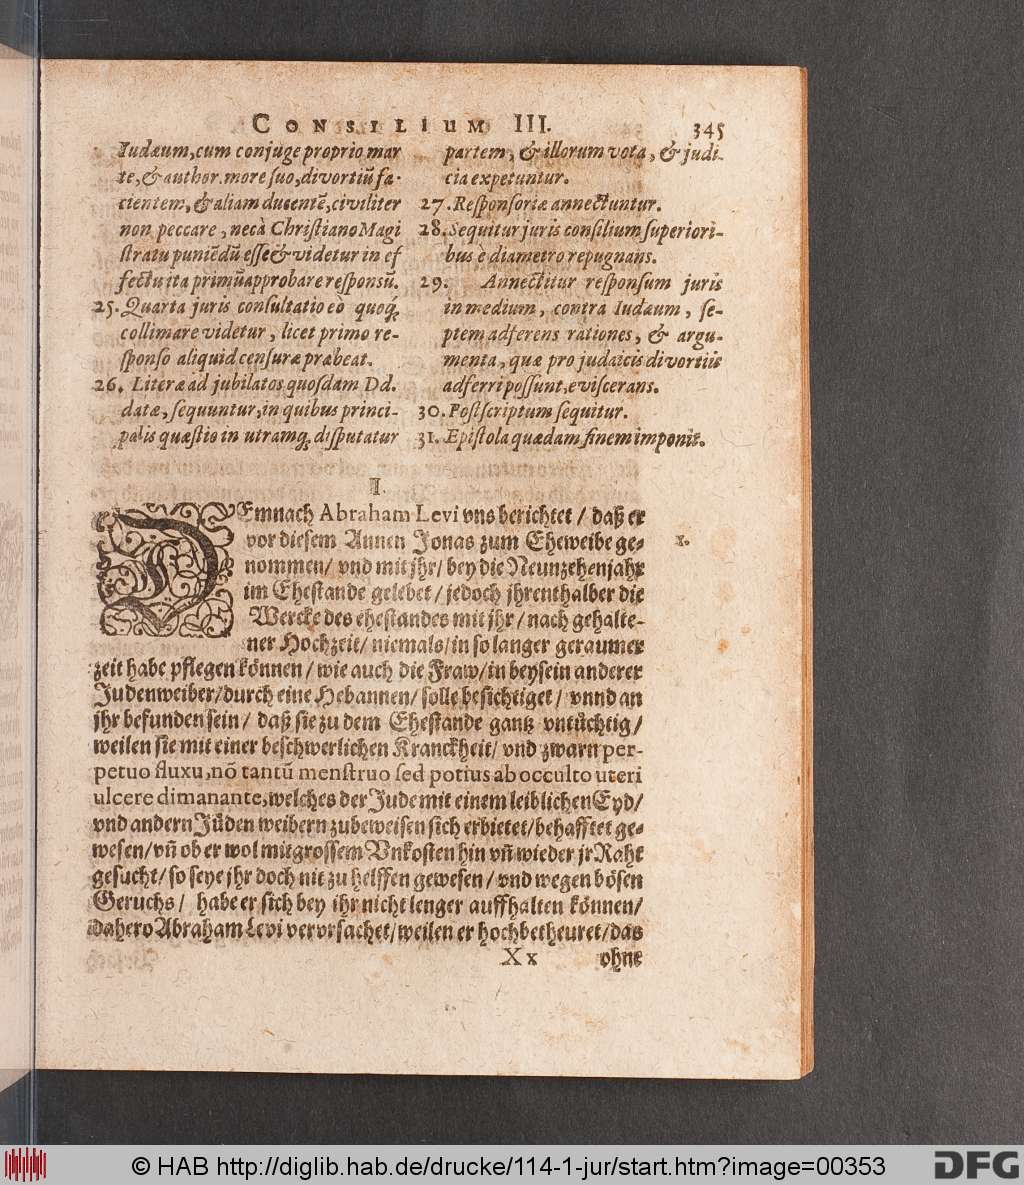 CONSILIUM III. 345
Iudæum, cum conjuge proprio mar
te, & author. more suo, divortiũ fa-
cientem, & aliam ducentẽ, civiliter
non peccare, nec à Christiano Magi
stratu puniẽdũ esse & videtur in ef
fectu ita primũ approbare responsũ.
25. Quarta juris consultatio eò quoq́;
collimare videtur, licet primo re-
sponso aliquid censuræ præbeat.
26. Literæ ad jubilatos quosdam Dd.
datæ, sequuntur, in quibus princi-
palis quæstio in utramq; disputatur
partem, & illorum vota, & judi-
cia expetuntur.
27. Responsoriæ annectuntur.
28. Sequitur juris consilium superiori-
bus è diametro repugnans.
29. Annectitur responsum juris
in medium, contra Iudæum, se-
ptem adferens rationes, & argu-
menta, quæ pro judaicis divortiis
adferri possunt, eviscerans.
30. Postscriptum sequitur.
31. Epistola quædam finem imponit.
I.
DEmnach Abraham Levi vns berichtet / daß er
vor diesem Annen Jonas zum Eheweibe ge-
nommen / vnd mit jhr / bey die Neunzehen jahr
im Ehestande gelebet / jedoch jhrenthalber die
Wercke des ehestandes mit jhr / nach gehalte-
ner Hochzeit / niemals / in so langer geraumer
zeit habe pflegen können / wie auch die Fraw / in beysein anderer
Judenweiber / durch eine Hebannen / solle besichtiget / vnnd an
jhr befunden sein / daß sie zu dem Ehestande gantz vntüchtig /
weilen sie mit einer beschwerlichen Kranckheit / vnd zwarn per-
petuo fluxu, nõ tantũ menstruo sed potius ab occulto uteri
ulcere dimanante, welches der Jude mit einem leiblichen Eyd /
vnd andern Jüden weibern zubeweisen sich erbietet / behafftet ge-
wesen / vñ ob er wol mit grossem Vnkosten hin vñ wieder jr Raht
gesucht / so seye jhr doch nit zu helffen gewesen / vnd wegen bösen
Geruchs / habe er sich bey ihr nicht lenger auffhalten können /
dahero Abraham Levi verorsachet / weilen er hochbetheuret / das
1.
Xx ohne
© HAB http://diglib.hab.de/drucke/114-1-jur/start.htm?image=00353
DFG